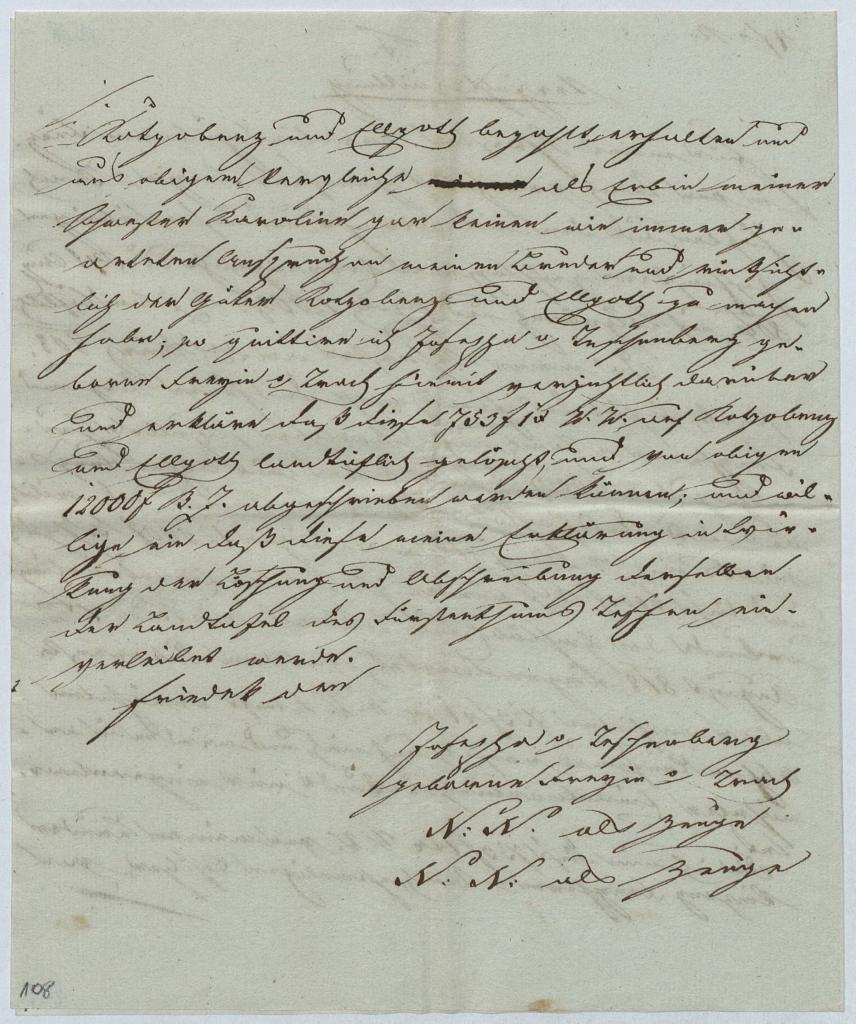 Kotzobenz und Ellgoth bezahlt erhalten und
aus obigem Vergleiche als Erbin meiner
Schwester Karoline gar keinen wie immer ge-
arteten Anspruch an meinen Bruder und rücksicht-
lich der Güter Kotzobenz und Ellgoth zu machen
habe; so quittire ich Josepha v Teschenberg ge-
borne Freyin v Trach hiemit verzichtlich darüber
und erkläre daß diese 753 f W. W. auf Kotzobenz
und Ellgoth landtäflich gelöscht, und von obigen
12000 f abgeschrieben werden können; und wil-
lige ein daß diese meine Erklärung in Wir-
kung der Löschung und Abschreibung derselben
der Landtafel des Fürstenthums Teschen ein-
verleibet werde.
Friedek den
Josepha v Teschenberg
geborne Freyin v Trach
N: N. als Zeuge
N: N: als Zeuge
108